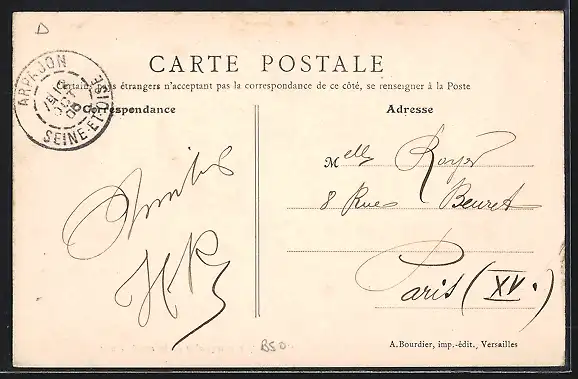 CARTE POSTALE
Certains pays étrangers n'acceptant pas la correspondance de ce côté, se renseigner à la Poste
ARPAJON
SEINE-ET-OISE
Correspondance
Adresse
Melle Royer
8 Rue Beuret
Paris (XV.)
Amitiés
HR
A. Bourdier, imp.-édit., Versailles
BSO